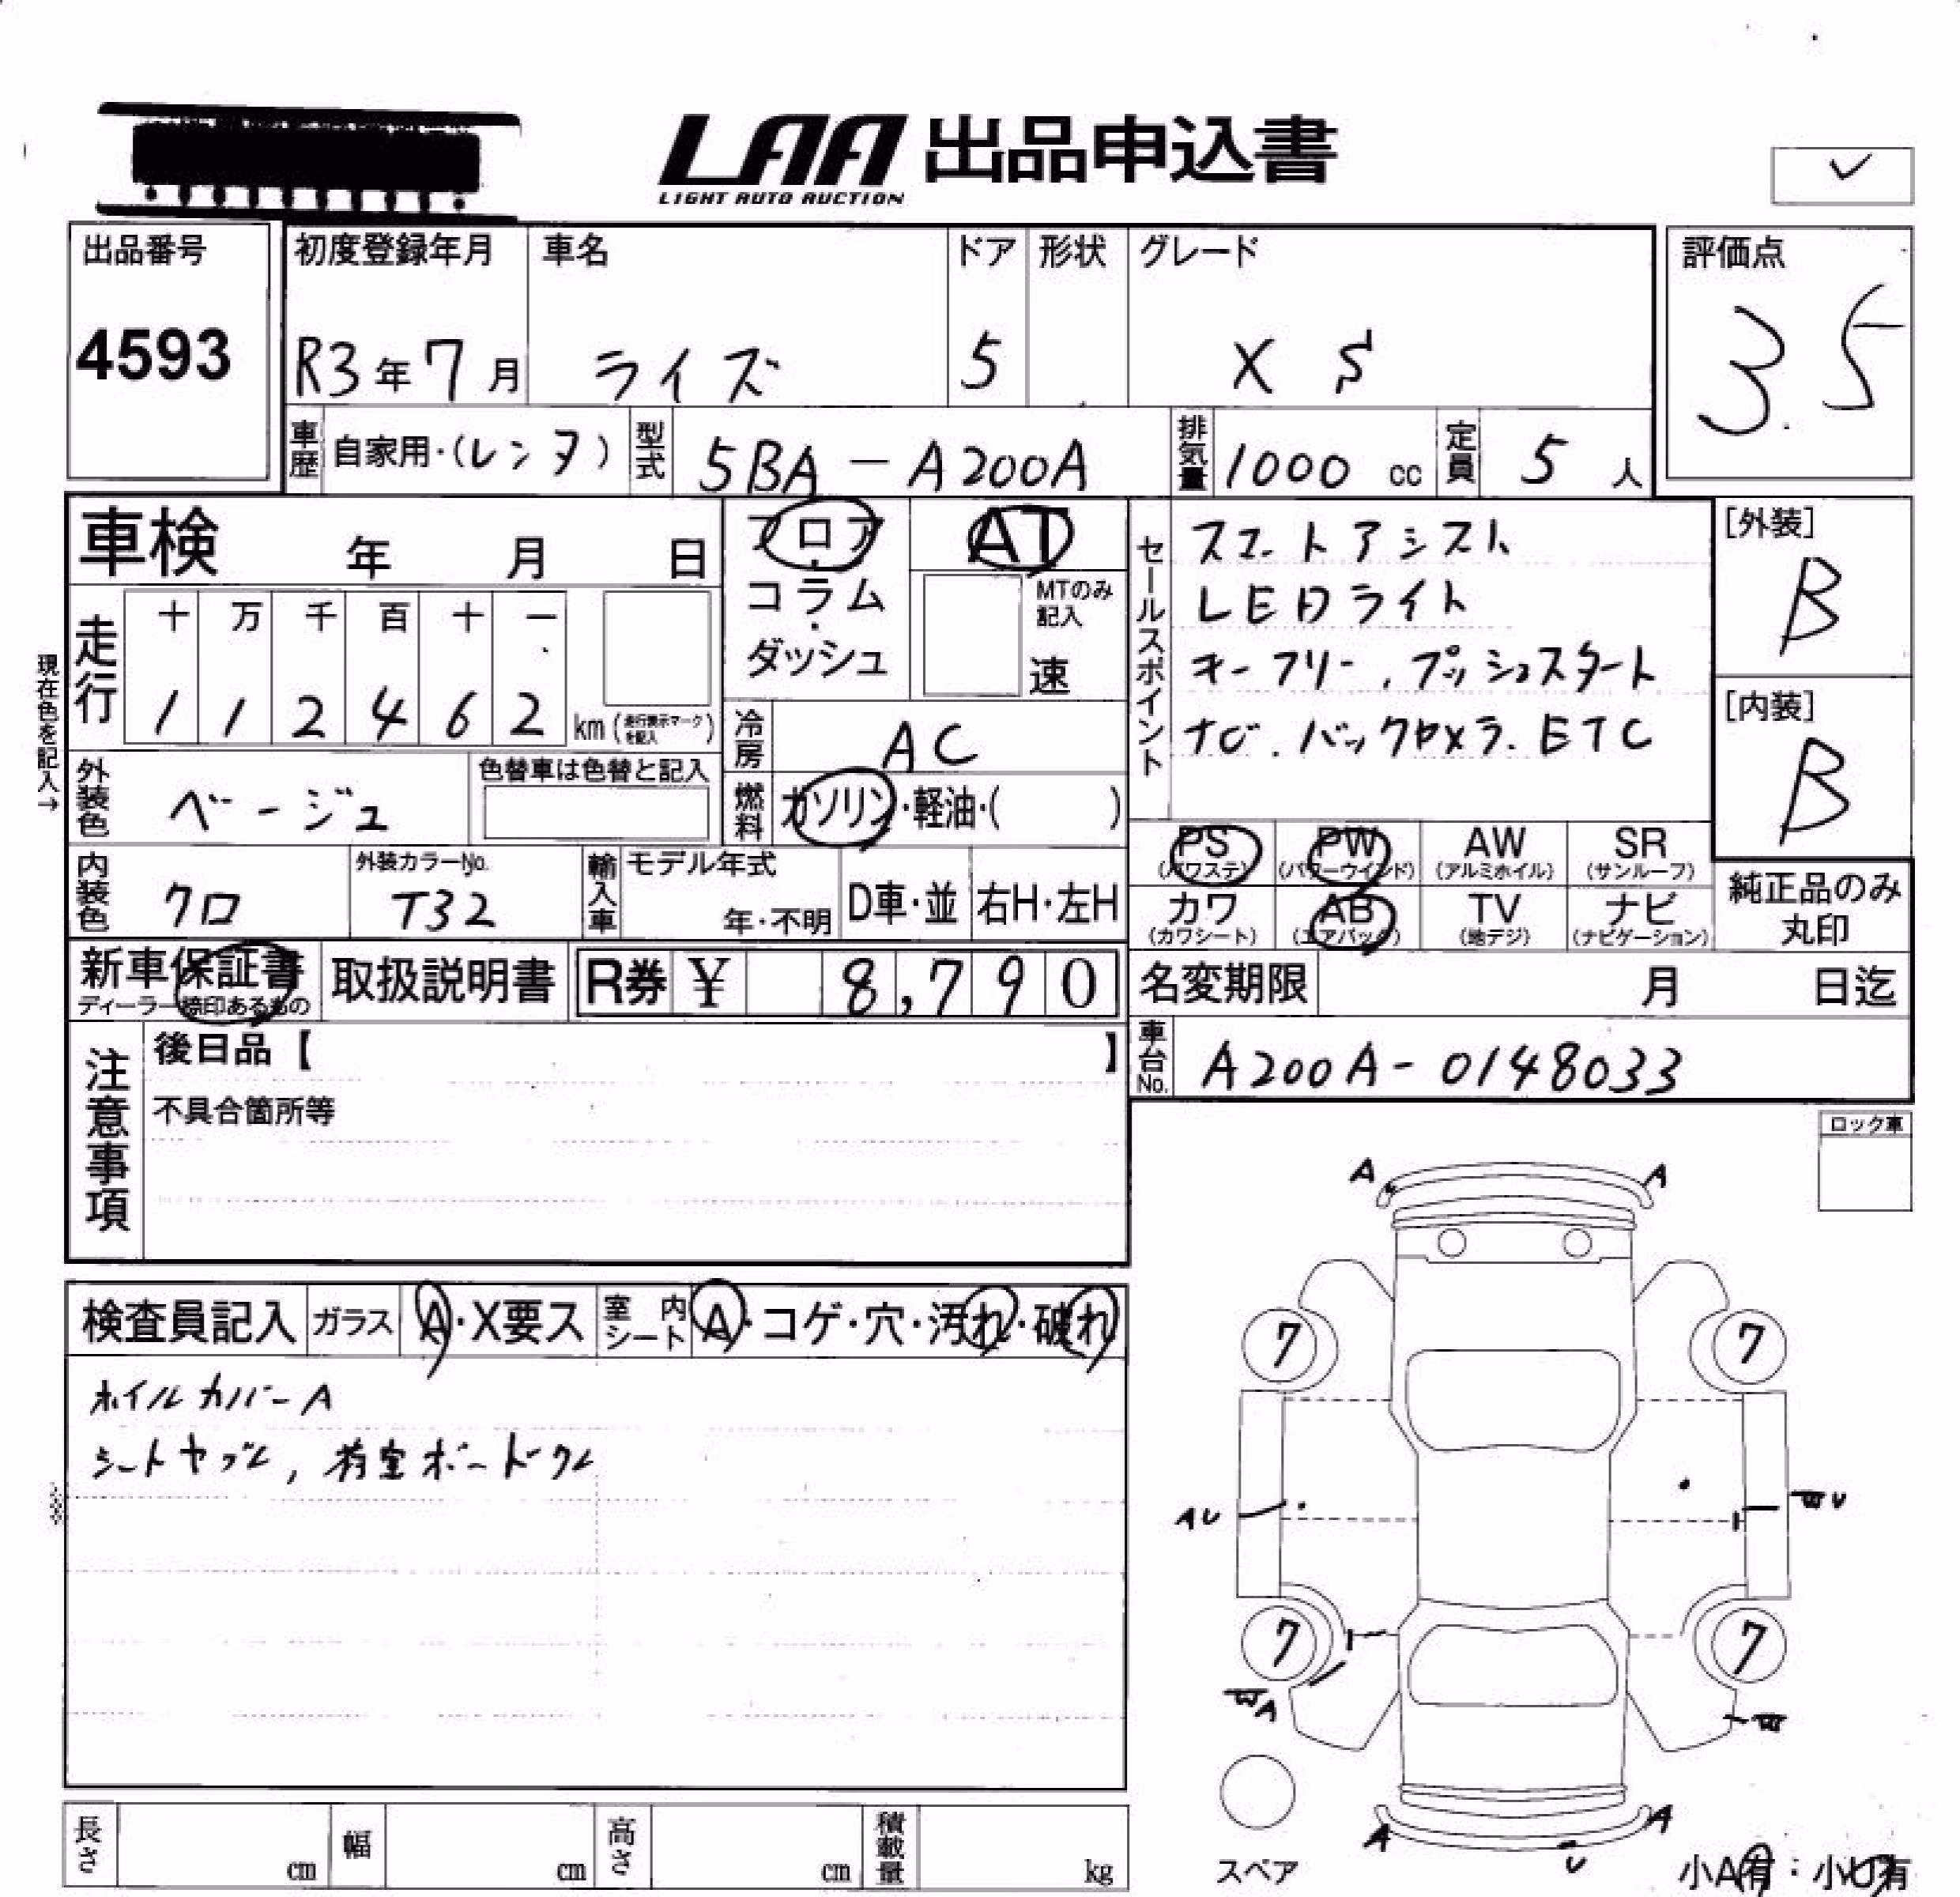 LAA 出品申込書
LIGHT AUTO AUCTION
✓
出品番号
4593
初度登録年月
R3年7月
車名
ライズ
ドア
5
形状
グレード
X S
評価点
3.5
車歴
自家用・(レンタ)
型式
5BA-A200A
排気量
1000 cc
定員
5 人
車検 年 月 日
フロア・コラム・ダッシュ
AT
MTのみ記入
速
セールスポイント
スマートアシスト
LEDライト
キーフリー、プッシュスタート
ナビ、バックカメラ、ETC
[外装]
B
[内装]
B
現在色を記入→
走行
十 万 千 百 十 一
1 1 2 4 6 2 km (走行表示マークを記入)
冷房
AC
外装色
ベージュ
色替車は色替と記入
燃料
ガソリン・軽油・( )
内装色
クロ
外装カラーNo.
T32
輸入車
モデル年式
年・不明
D車・並
右H・左H
PS
(パワステ)
PW
(パワーウインド)
AW
(アルミホイル)
SR
(サンルーフ)
カワ
(カワシート)
AB
(エアバック)
TV
(地デジ)
ナビ
(ナビゲーション)
純正品のみ
丸印
新車保証書
ディーラー捺印あるもの
取扱説明書
R券 ¥ 8,790
名変期限 月 日迄
車台No.
A200A-0148033
注意事項
後日品【 】
不具合箇所等
ロック車
検査員記入
ガラス
A・X要ス
室内シート
A・コゲ・穴・汚れ・破れ
ホイルカバーA
シートヤブレ, 荷室ボードワレ
A A
7 7
AU
WU
7 7
WA
W
A A
U
スペア
小A有:小U有
長さ cm
幅 cm
高さ cm
積載量 kg